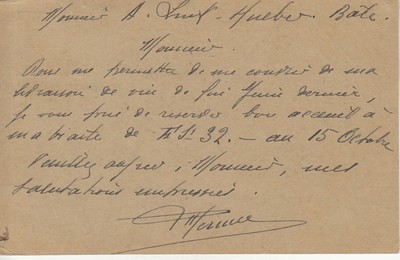 Monsieur A. Bâle.
Monsieur.
Vous me permettre de me couvrir de ma
livraison de vin de fin Juin dernier,
je vous prie de réserver bon accueil à
ma traite de 32.— au 15 Octobre
Veuillez agréer, Monsieur, mes
salutations empressées.